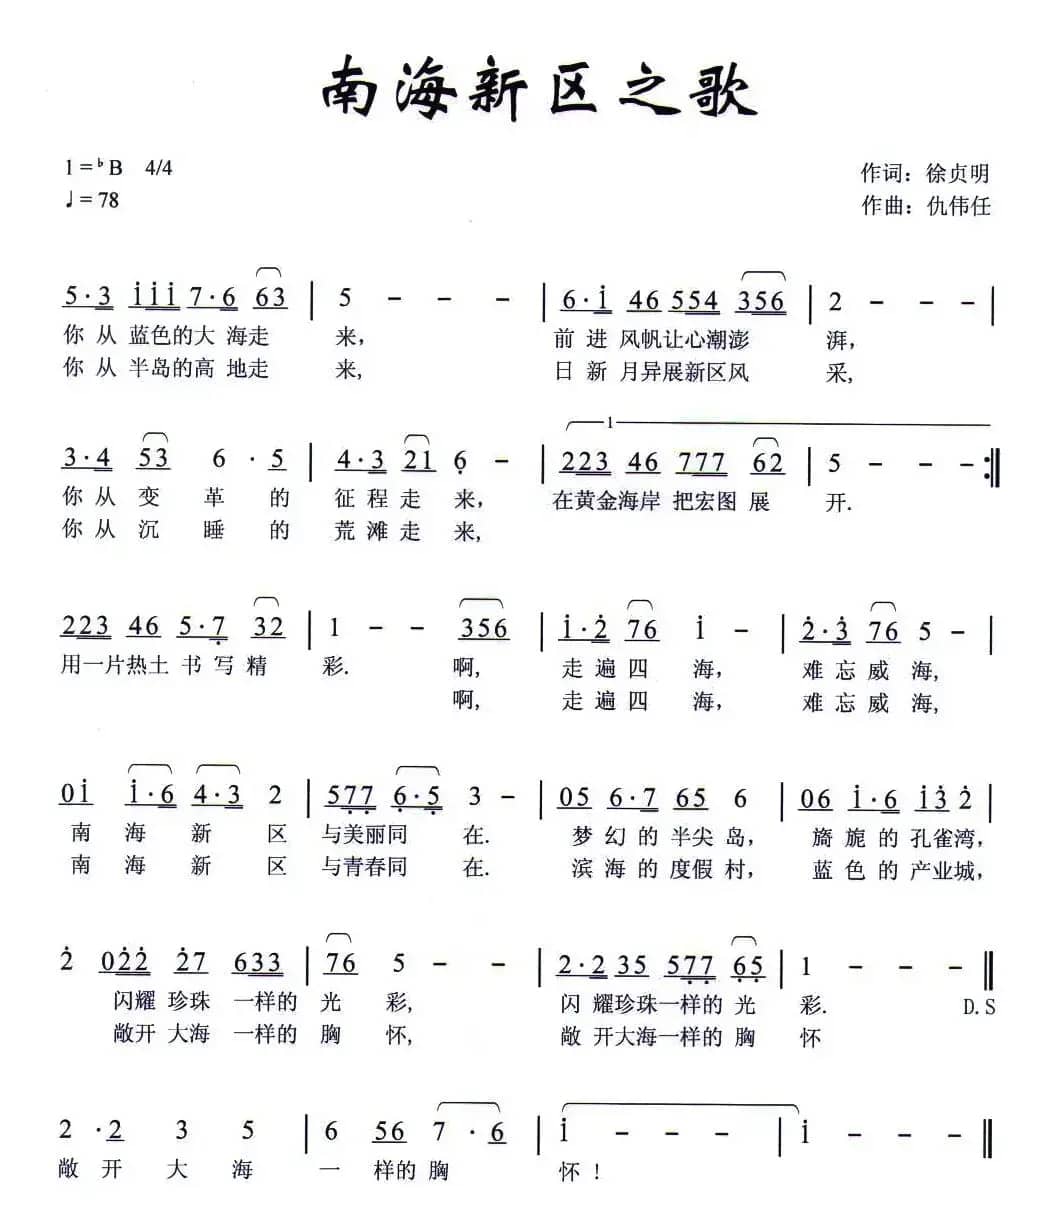 南海新区之歌
1=♭B 4/4
♩=78
作词：徐贞明
作曲：仇伟任
5·3 i̇i̇i̇ 7·6 63 | 5 - - - | 6·i̇ 46 554 356 | 2 - - - |
你从蓝色的大海走 来， 前进风帆让心潮澎 湃，
你从半岛的高地走 来， 日新月异展新区风 采,
1
3·4 53 6·5 | 4·3 21 6̣ - | 223 46 777 62 | 5 - - - :||
你从变革的 征程走来， 在黄金海岸把宏图展 开.
你从沉睡的 荒滩走来,
223 46 5·7̣ 32 | 1 - - 356 | i̇·2̇ 76 i̇ - | 2̇·3̇ 76 5 - |
用一片热土书写精 彩. 啊, 走遍四海， 难忘威海,
啊, 走遍四海， 难忘威海,
0i̇ i̇·6 4·3 2 | 57̣7̣ 6̣·5̣ 3 - | 05 6·7 65 6 | 06 i̇·6 i̇3̇ 2̇ |
南海新区 与美丽同在. 梦幻的半尖岛， 旖旎的孔雀湾，
南海新区 与青春同在. 滨海的度假村， 蓝色的产业城，
2̇ 02̇2̇ 2̇7 633 | 76 5 - - | 2·2 35 57̣7̣ 6̣5̣ | 1 - - - ||
闪耀珍珠一样的 光彩, 闪耀珍珠一样的光 彩. D.S
敞开大海一样的 胸怀, 敞开大海一样的胸 怀
2·2 3 5 | 6 56 7·6 | i̇ - - - | i̇ - - - ||
敞开大海 一样的胸 怀！